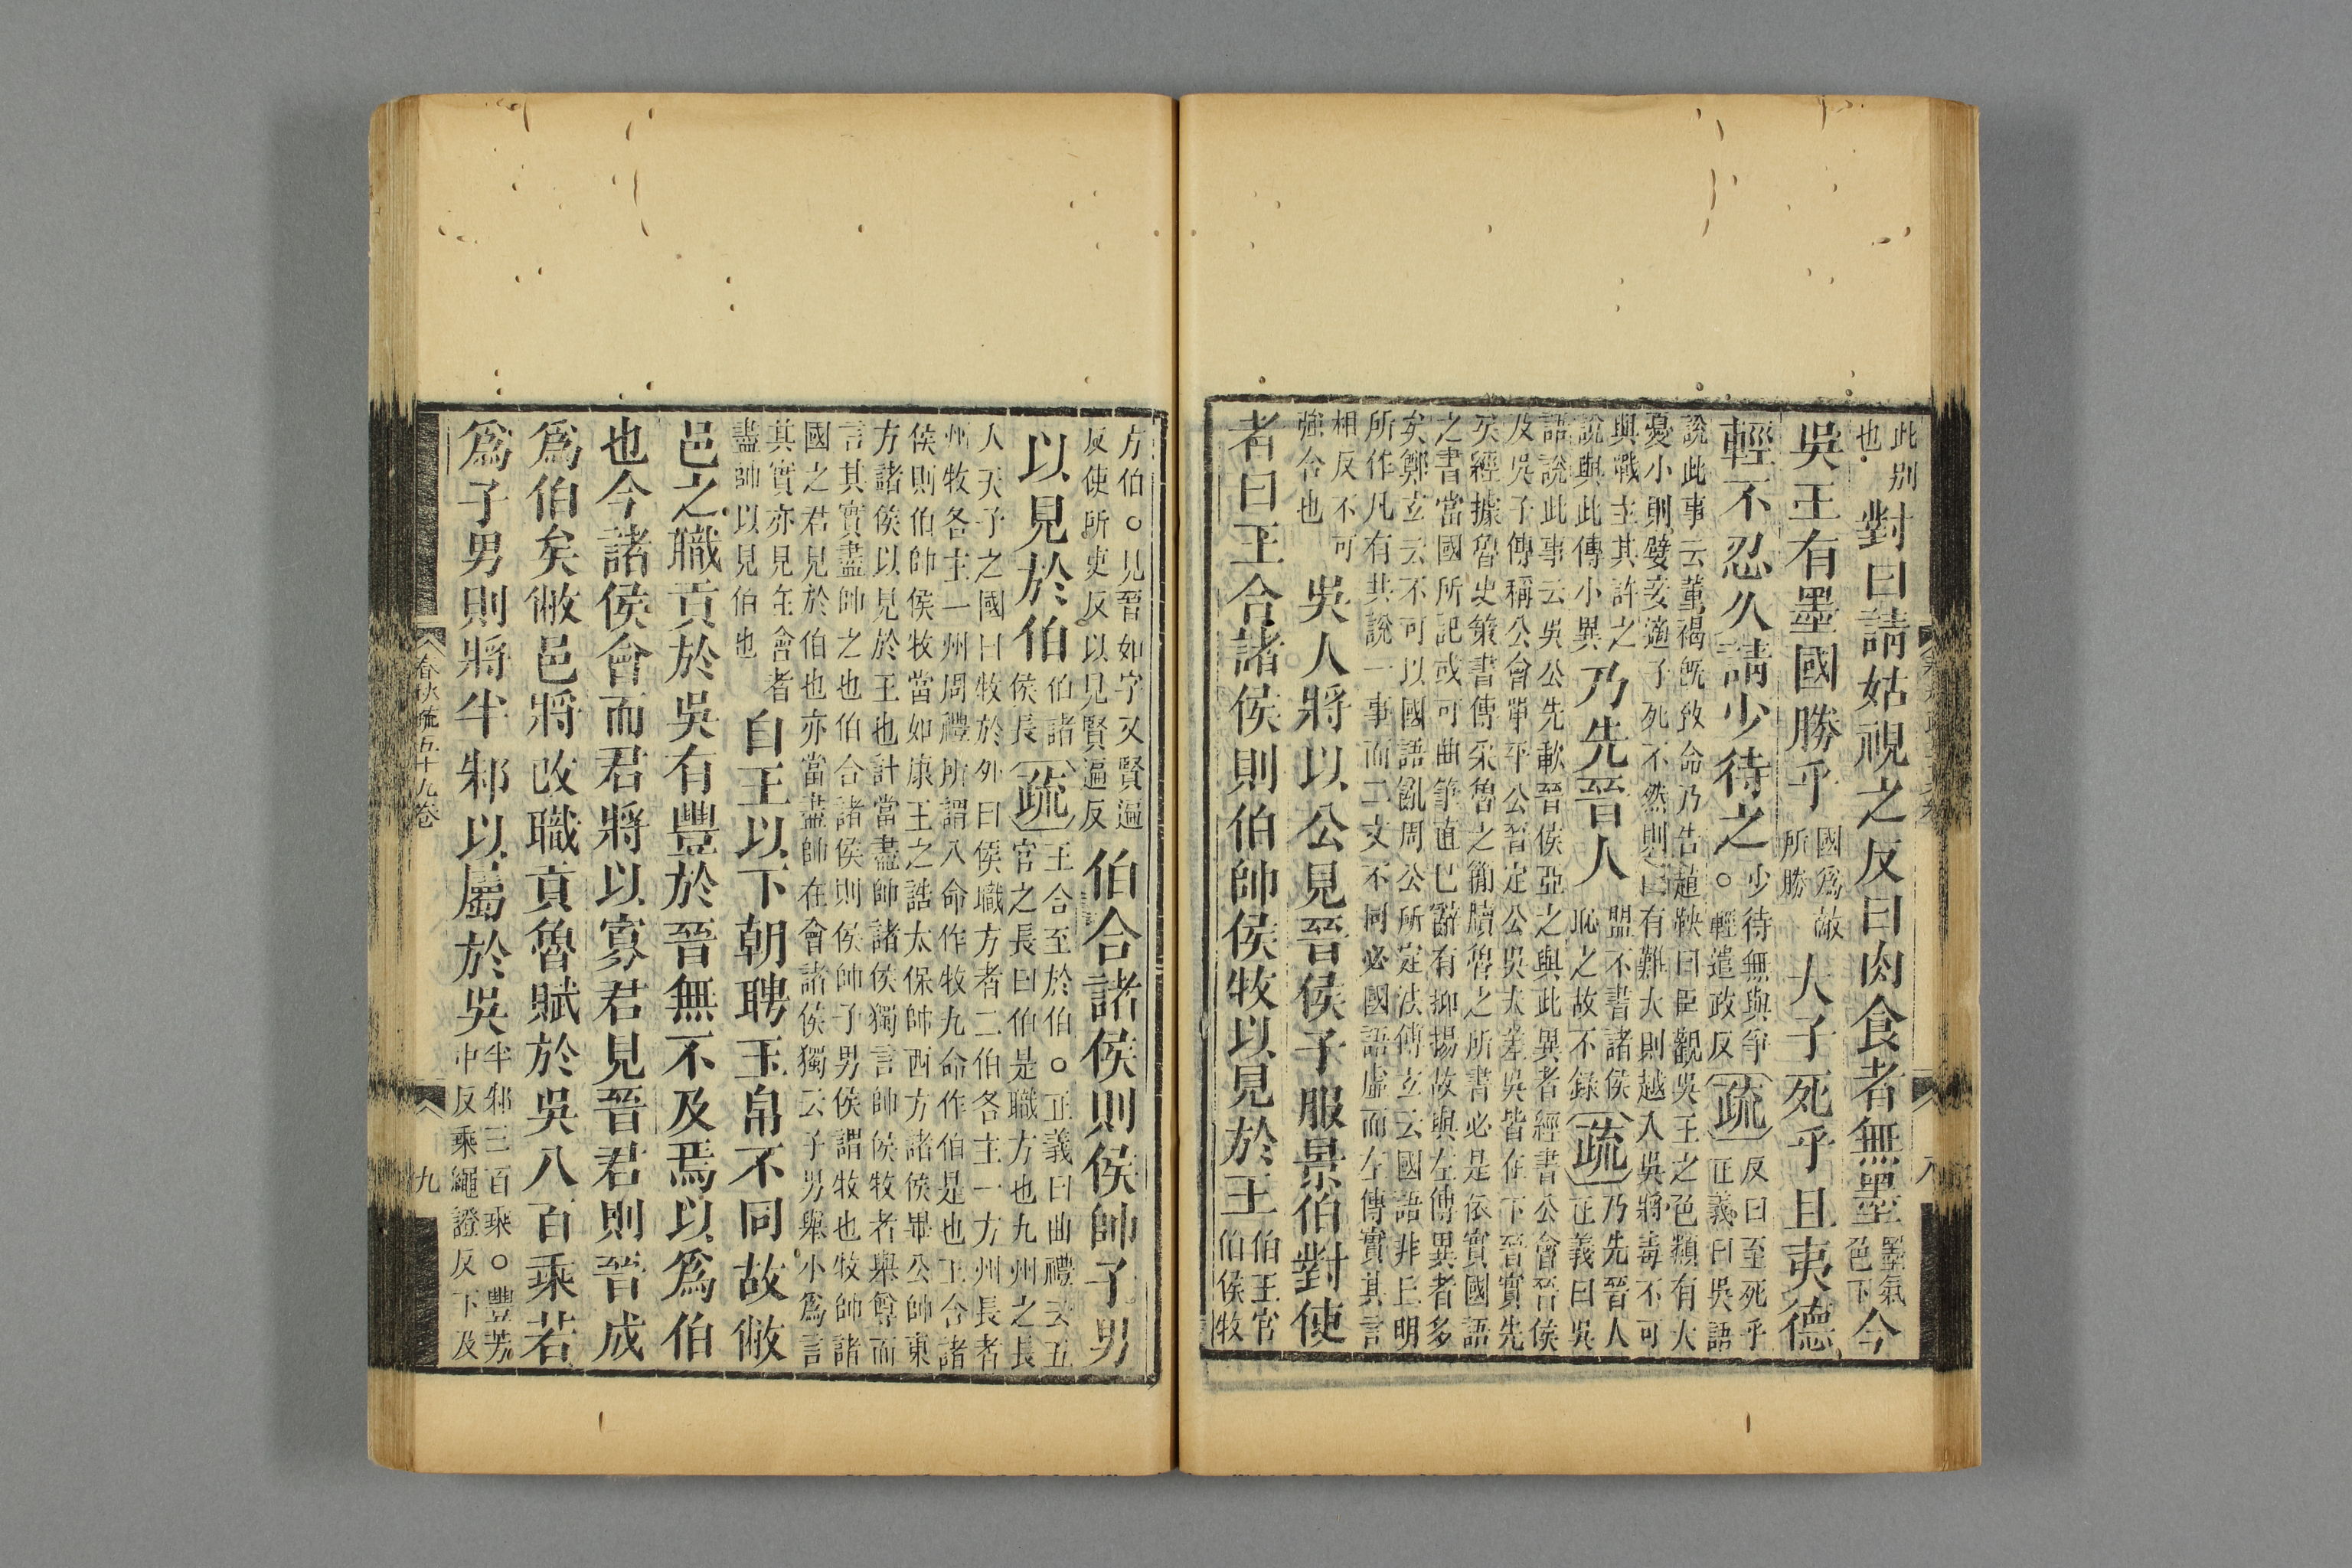 此別
也
對曰請姑視之反曰肉食者無墨
墨氣
色下
今
吳王有墨國勝乎
國爲敵
所勝
大子死乎且夷德
輕不忍久請少待之
少待無與爭
○輕遣政反
疏
反曰至死乎
正義曰吳語
說此事云董褐旣致命乃告趙鞅曰臣觀吳王之色類有大
憂小則嬖妾適子死不然則曰有難大則越入吳將毒不可
與戰主其許之
說與此傳小異
乃先晉人
盟不書諸侯
恥之故不錄
疏
乃先晉人
正義曰吳
語說此事云吳公先歃晉侯亞之與此異者經書公會晉侯
及吳子傳稱公會單平公晉定公吳夫差吳皆在下晉實先
矣經據魯史策書傳采魯之簡牘魯之所書必是依實國語
之書當國所記或可曲筆直己辭有抑揚故與左傳異者多
矣鄭玄云不可以國語亂周公所定法傅玄云國語非丘明
所作凡有共說一事而二文不同必國語虛而左傳實其言
相反不可
強合也
吳人將以公見晉侯子服景伯對使
者曰王合諸侯則伯帥侯牧以見於王
伯王官
伯侯牧
方伯○見晉如字又賢遍
反使所吏反以見賢遍反
伯合諸侯則侯帥子男
以見於伯
伯諸
侯長
疏
王合至於伯○正義曰曲禮云五
官之長曰伯是職方也九州之長
人天子之國曰牧於外曰侯職方者二伯各主一方州長者
州牧各主一州周禮所謂八命作牧九命作伯是也王合諸
侯則伯帥侯牧當如康王之誥太保帥西方諸侯畢公帥東
方諸侯以見於王也計當盡帥諸侯獨言帥侯牧者舉尊而
言其實盡帥之也伯合諸侯則侯帥子男侯謂牧也牧帥諸
國之君見於伯也亦當盡帥在會諸侯獨云子男舉小爲言
其實亦見在會者
盡帥以見伯也
自王以下朝聘玉帛不同故敝
邑之職貢於吳有豐於晉無不及焉以爲伯
也今諸侯會而君將以寡君見晉君則晉成
爲伯矣敝邑將改職貢魯賦於吳八百乘若
爲子男則將半邾以屬於吳
半邾三百乘○豐芳
中反乘繩證反下及
春秋疏五十九卷
九